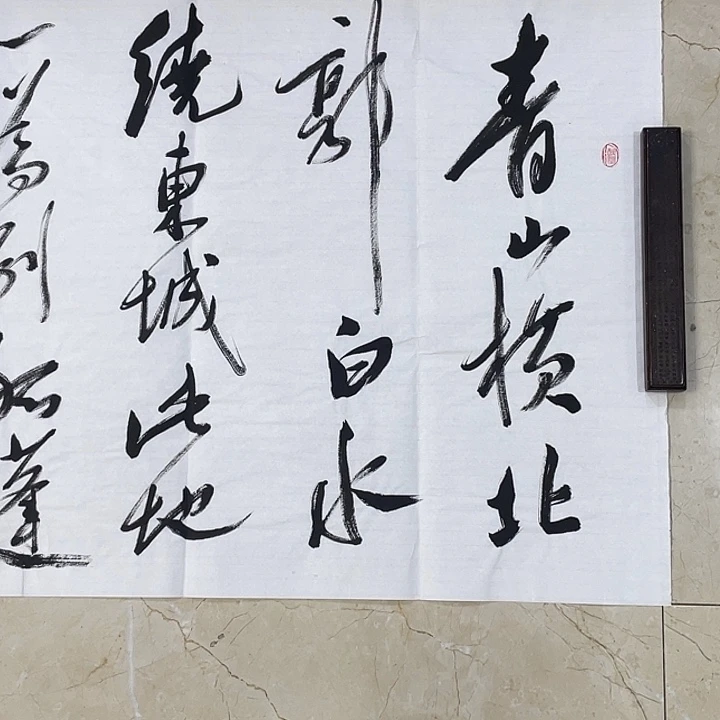 青山横北
郭白水
繞東城此地
一為別孤蓬